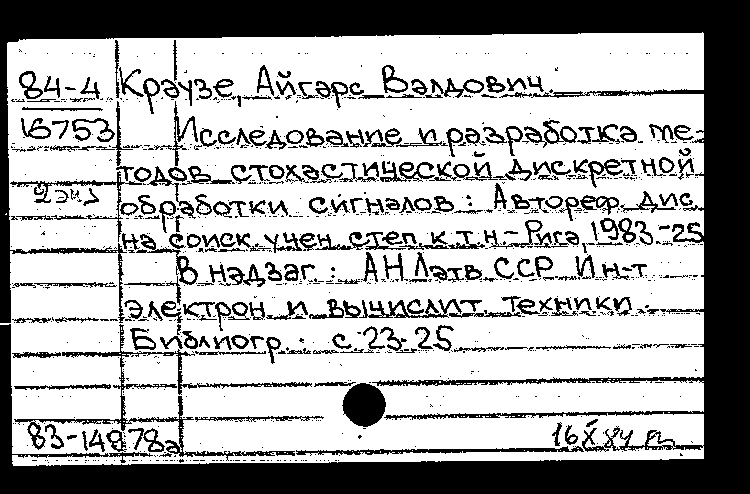 84-4 Краузе, Айгарс Валдович.
16753 Исследование и разработка ме-
тодов стохастической дискретной
2 экз обработки сигналов : Автореф. дис.
на соиск. учен. степ. к.т.н - Рига, 1983 - 25
В надзаг. : АН Латв. ССР Ин-т
электрон и вычислит. техники.
Библиогр. : с. 23-25
83-14878а 16 X 84